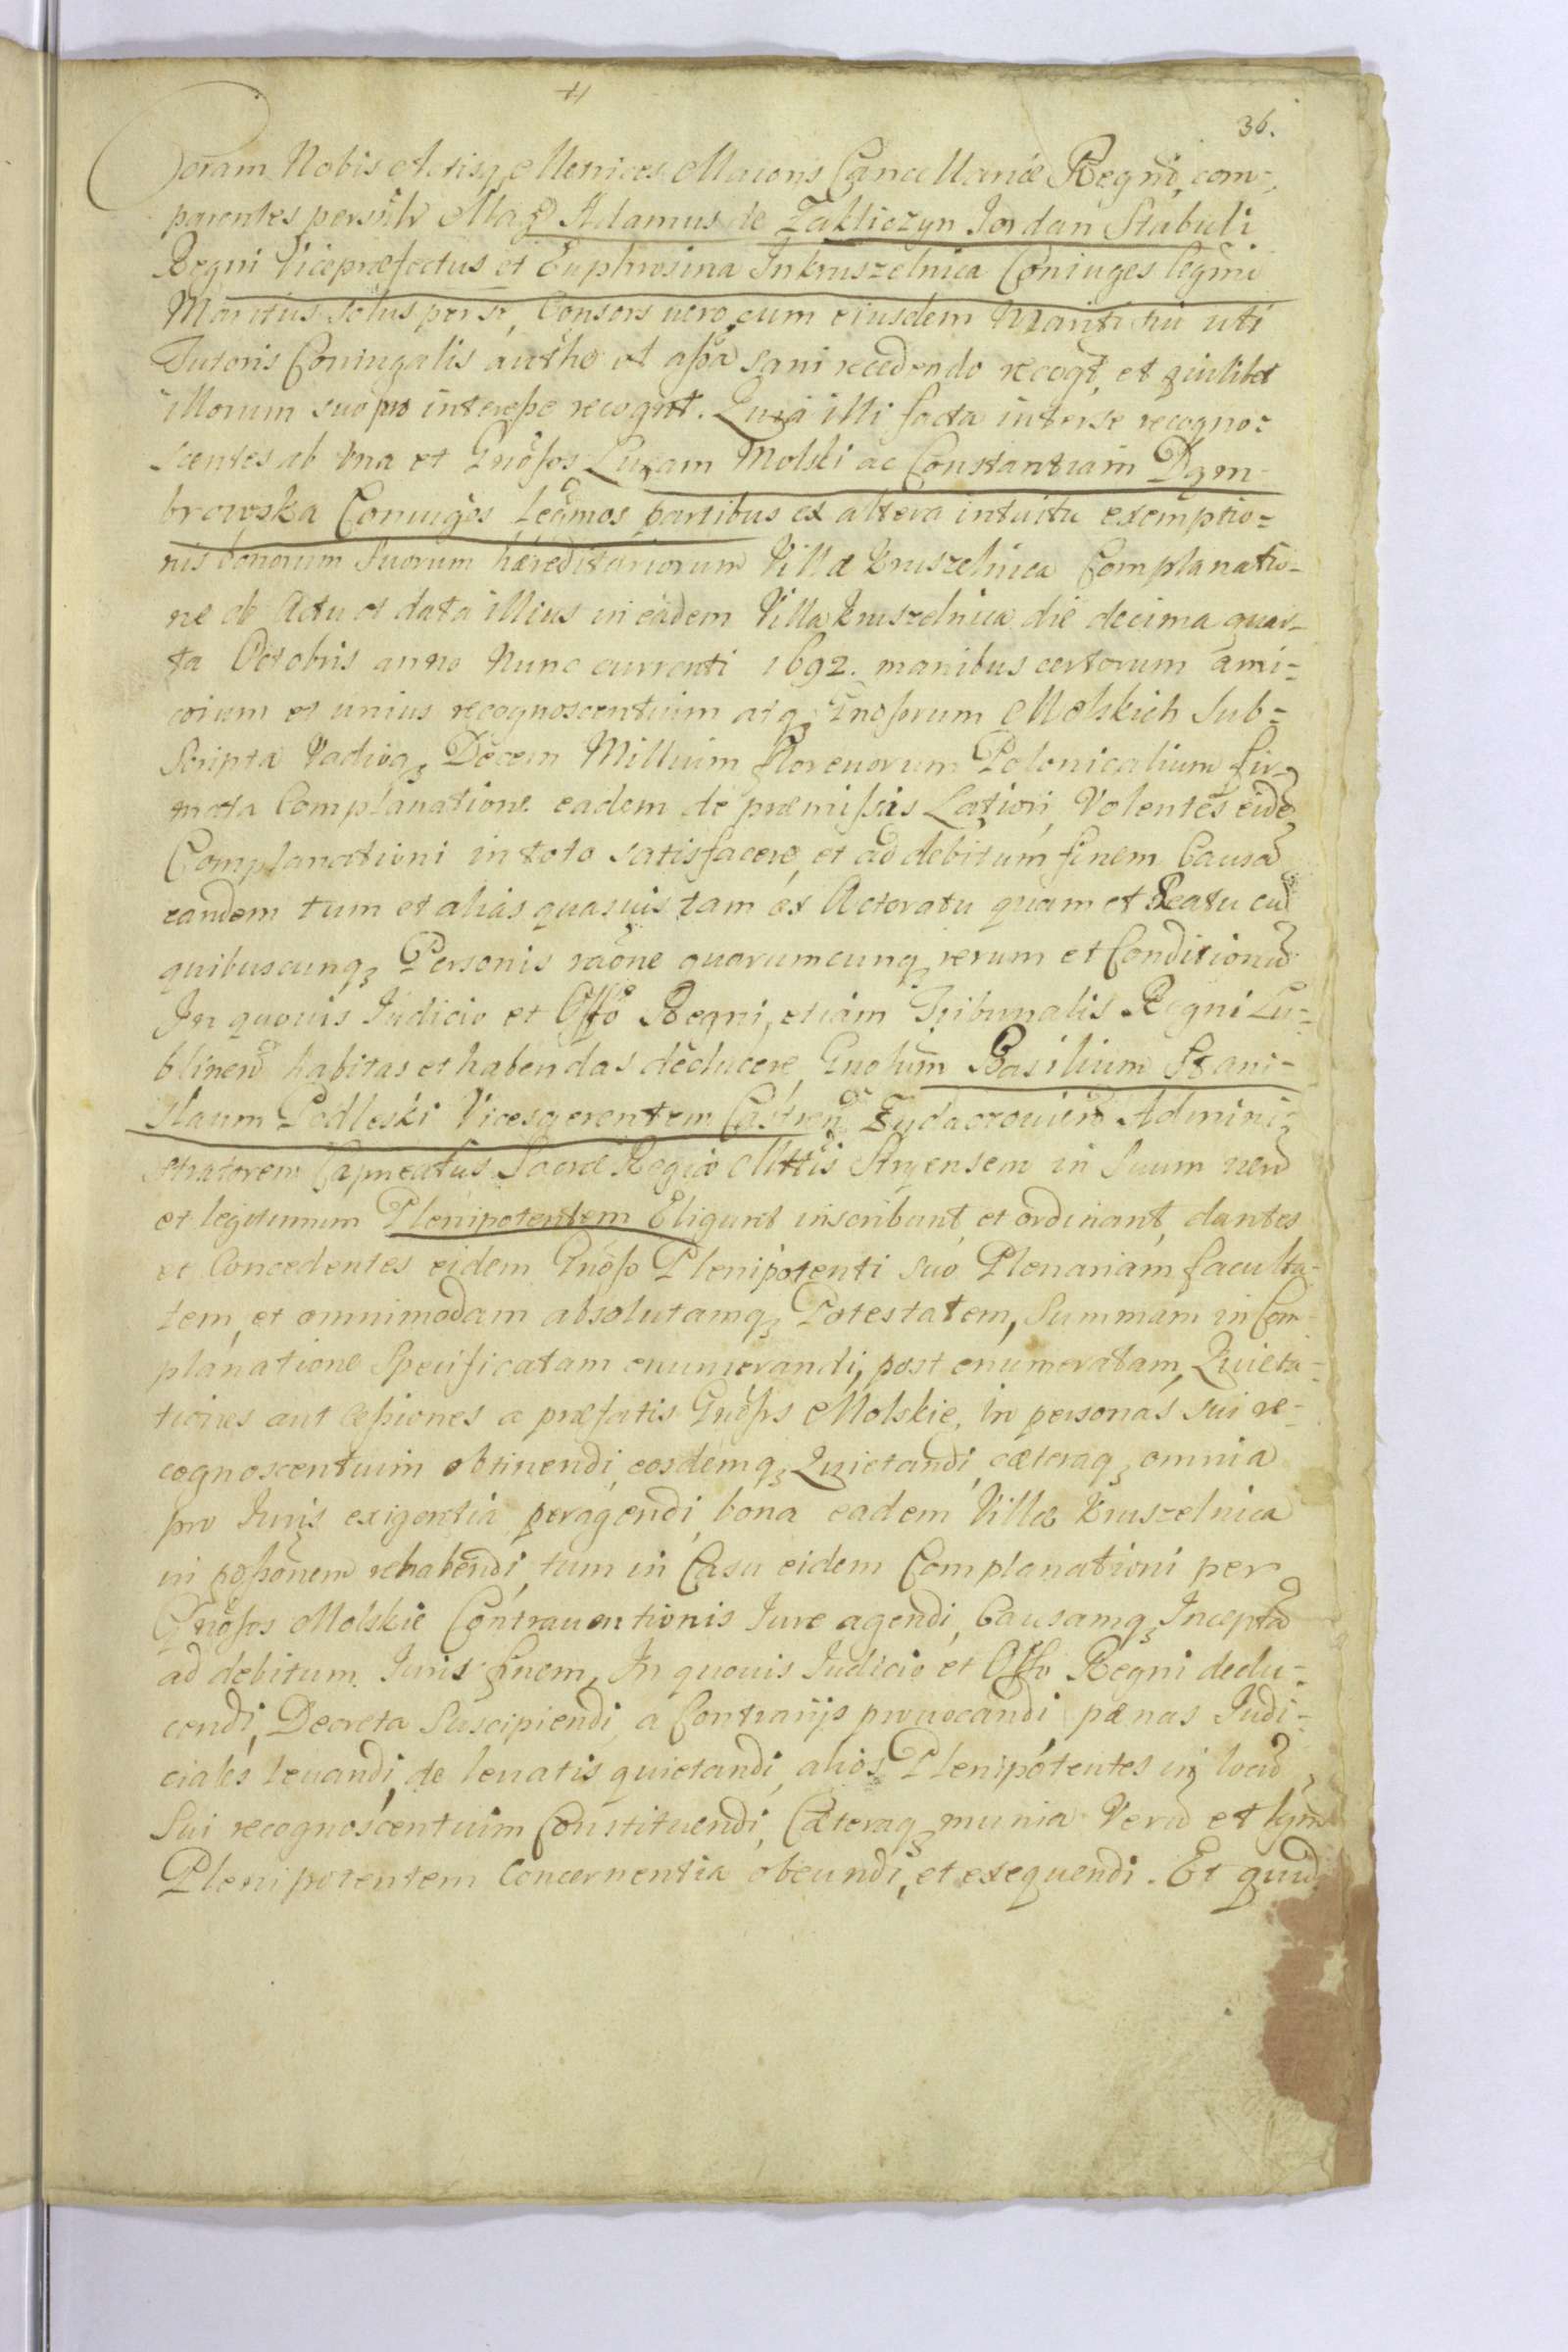 36.
Coram Nobis Actisq Metrices Maioris Cancellariæ Regni, com-
parentes persnlr Mag Adamus de Zakliczyn Iordan Stabuli
Regni Vicepræfectus et Euphrosina Inkruszelnica Coniuges legmi
Maritus solus per se, Consors uero cum eiusdem Mariti sui uti
Tutoris Coniugalis autho et assa sani recedendo recogt, et quilibet
illorum suo pro interesse recognt. Quia illi facta inter se recogno-
scentes ab Vna et Gnosos Lucam Molski ac Constantiam Dąm-
browska Coniuges legmos partibus ex altera intuitu exemptio-
nis bonorum Suorum hæreditariorum Villæ Kruszelnica Complanatio-
ne de Actu et data illius in eadem Villa Kruszelnica die decima quar-
ta Octobris anno Nunc currenti 1692. manibus certorum ami-
corum et unius recognoscentium atq Gnosorum Molskich Sub-
scripta Vadioq Decem Millium florenorum Polonicalium fir-
mata Complanatione eadem de præmissis Latiori, Volentes eidē
Complanationi in toto satisfacere, et ad debitum finem Causā
eandem tum et alias quasuis tam ex Actoratu quam et Reatu cū
quibuscunq Personis raōne quarumcunq rerum et Conditionū
In quouis Iudicio et Offō Regni, etiam Tribunalis Regni Lu-
blinen habitas et habendas deducere, Gnosum Basilium Stani-
slaum Podleski Vicesgerentem Castren Zydaczouien Admini-
stratorem Capneatus Sacræ Regiæ Mttis Stryensem in Suum uerū
et legitimum Plenipotentem Eligunt inscribunt, et ordinant, dantes
et Concedentes eidem Gnoso Plenipotenti suo Plenariam faculta-
tem, et omnimodam absolutamq Potestatem, Summam in Com-
planatione Specificatam enumerandi, post enumeratam, Quieta-
tiones aut cessiones a præfatis Gnosis Molskie, in personas sui re-
cognoscentium obtinendi, eosdemq Quietandi, cæteraq omnia
pro Iuris exigentia peragendi, bona eadem Villæ Kruszelnica
in possonem rehabendi, tum in Casu eidem Complanationi per
Gnosos Molskie Contrauentionis Iure agendi, Causamq Inceptā
ad debitum Iuris finem, In quouis Iudicio et Offo Regni dedu-
cendi, Decreta Suscipiendi, a Contrarijs prouocandi pænas Iudi-
ciales leuandi, de leuatis quietandi, alios Plenipotentes in locū
Sui recognoscentium Constituendi, Cæteraq munia Verū et lgmū
Plenipotentem Concernentia obeundi, et exequendi. Et quid